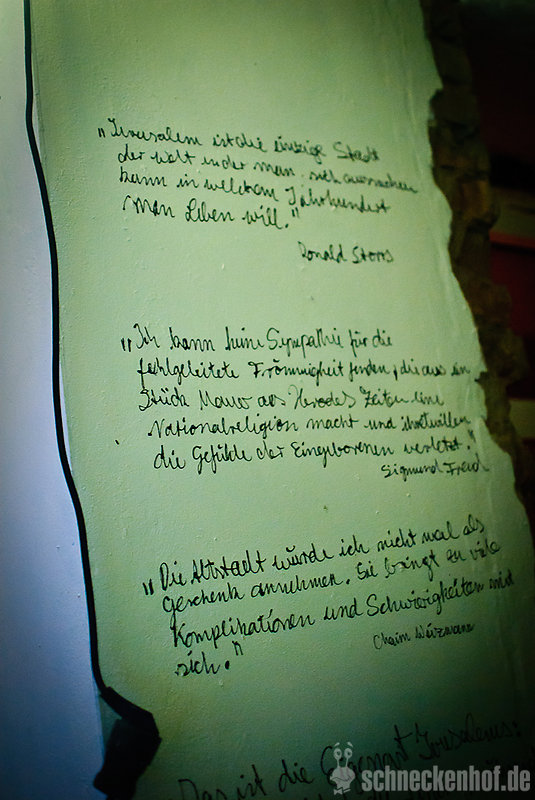 „Jerusalem ist die einzige Stadt
der Welt in der man sich aussuchen
kann in welchem Jahrhundert
man Leben will."
Ronald Storrs
„Ich kann keine Sympathie für die
fehlgeleitete Frömmigkeit finden, die aus ein
Stück Mauer aos Herodes Zeiten eine
Nationalreligion macht und ihretwillen
die Gefühle der Eingeborenen verletzt."
Sigmund Freud
„Die Altstadt würde ich nicht mal als
Geschenk annehmen. Sie bringt zu viele
Komplikationen und Schwierigkeiten mit
sich."
Chaim Weizmann
Das ist die Jerusalems:
schneckenhof.de